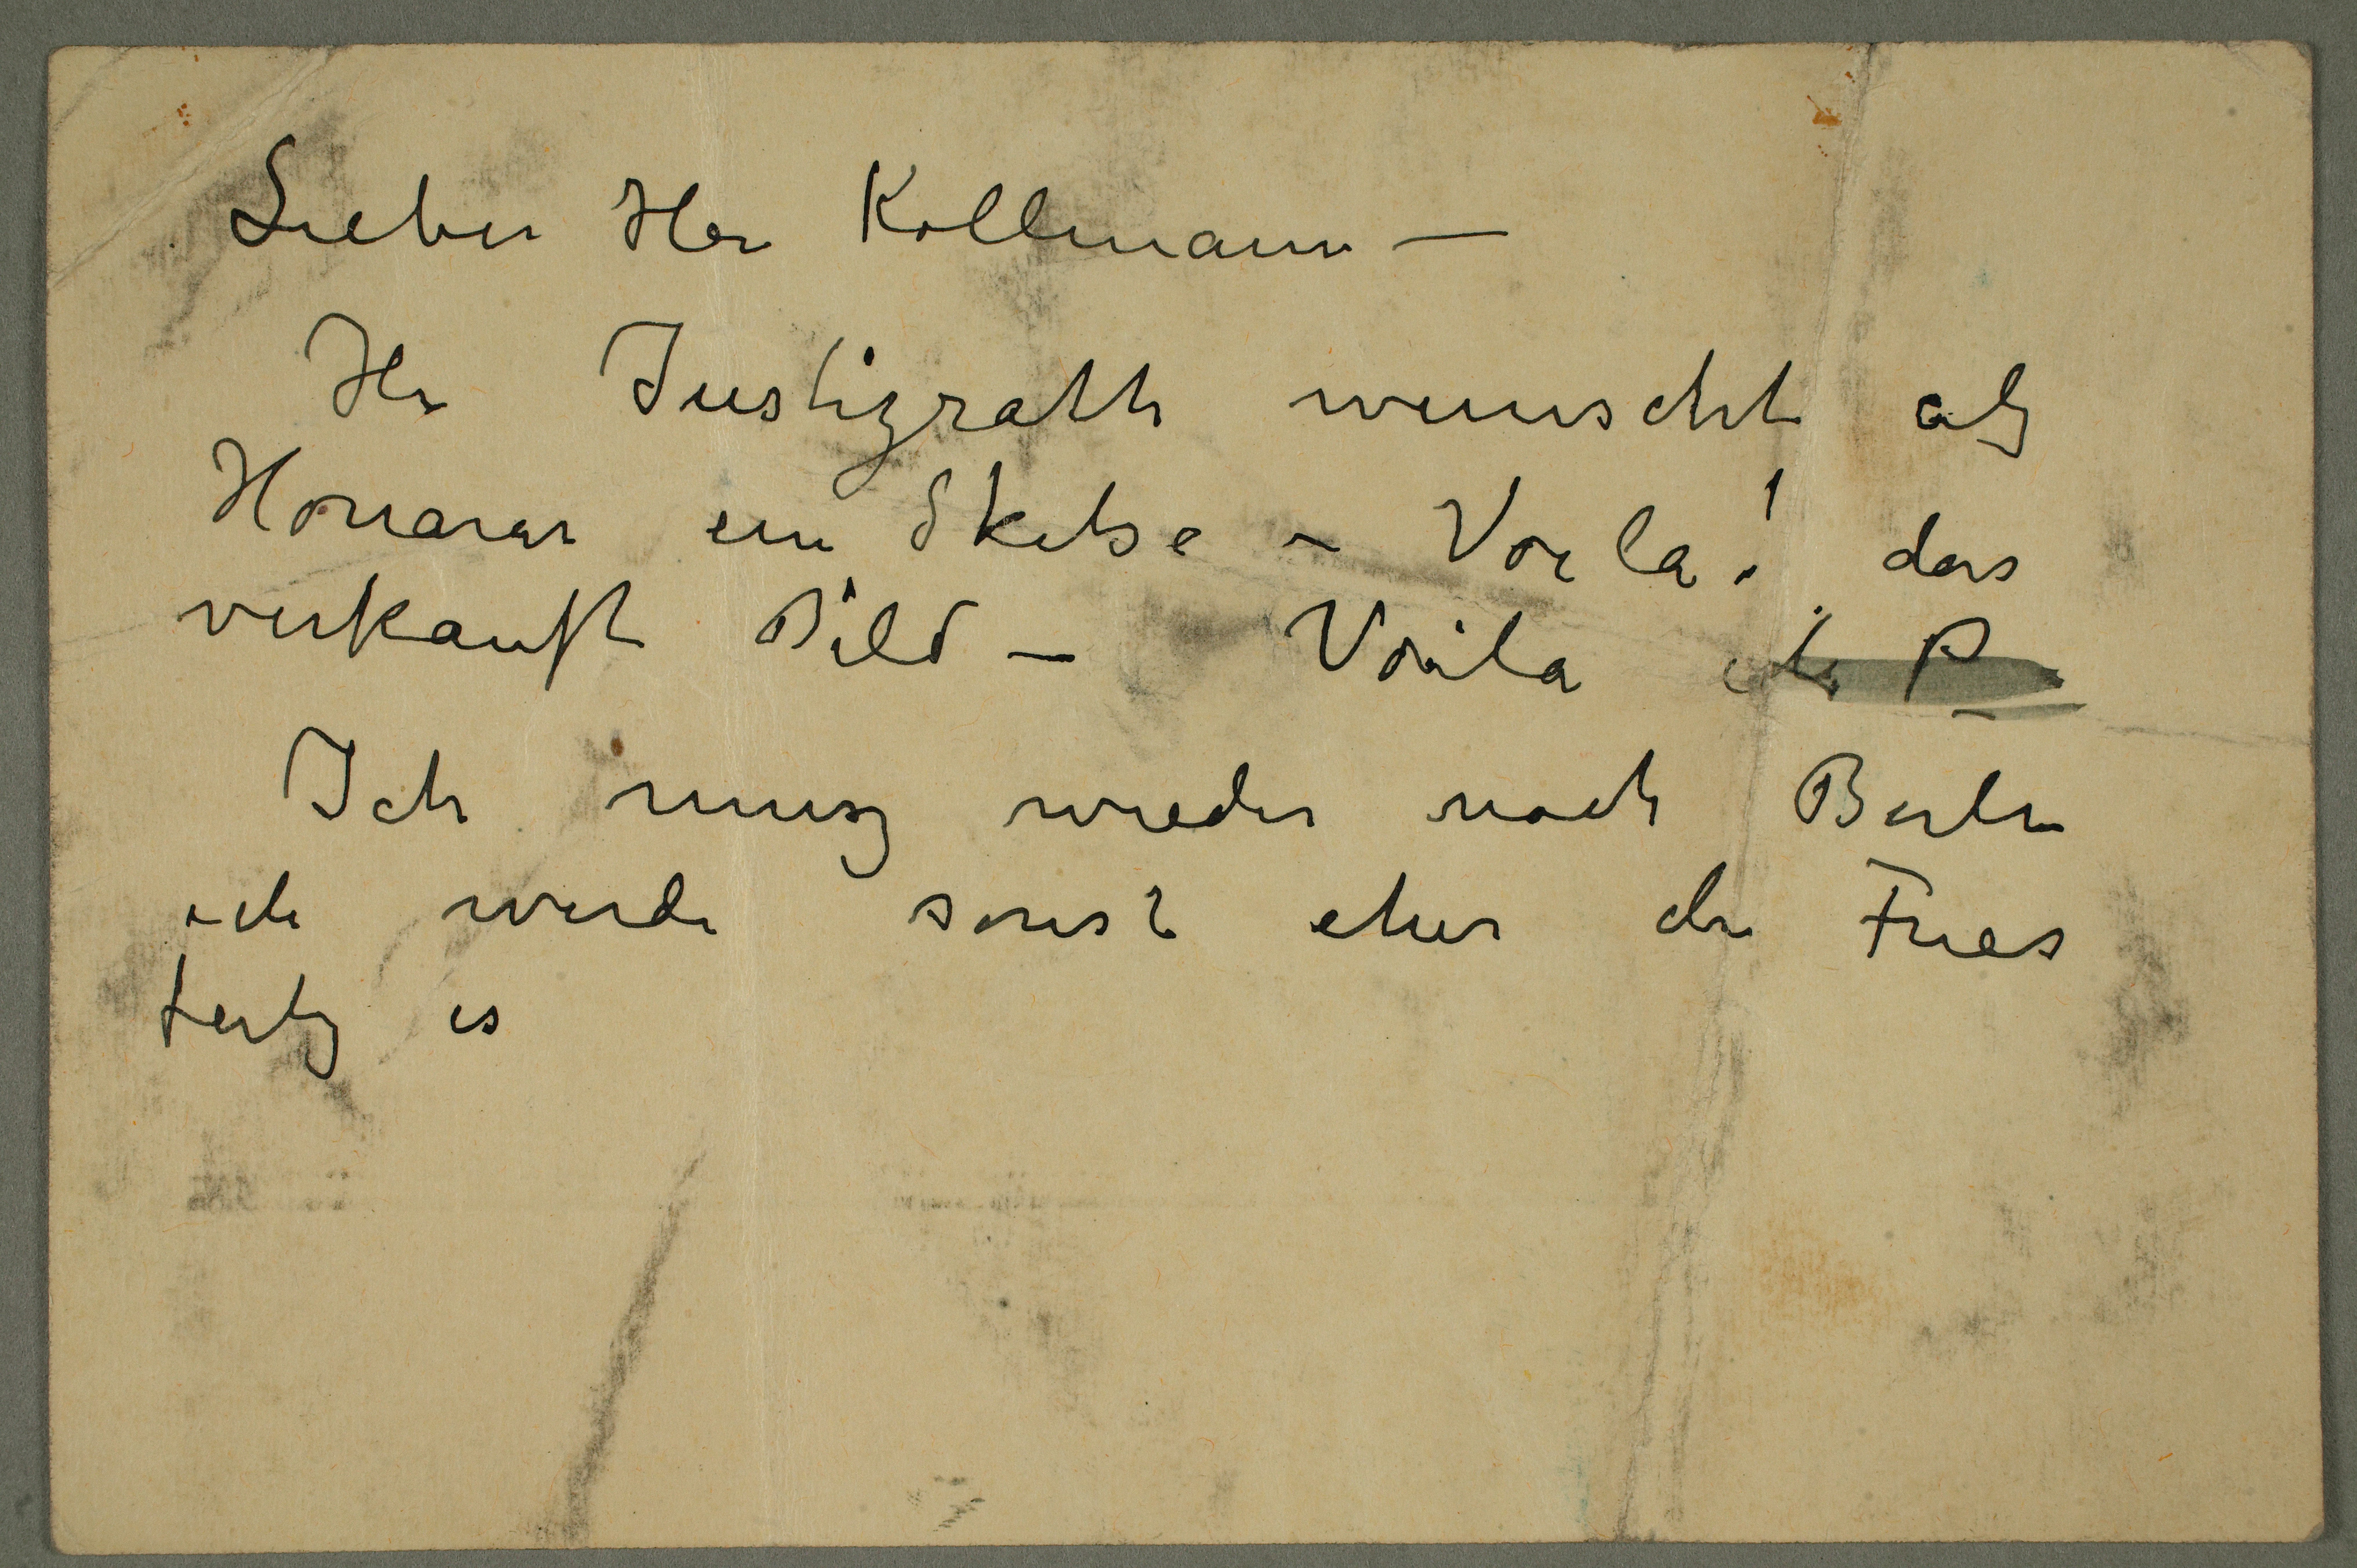 Lieber Herr Kollmann —
Hr Justizrath wunscht als
Honorar ein Skitse – Voila! das
verkauft Bild — Voila
Ich musz wieder nach Berlin
ich werde sonst eher der Fries
fertig is